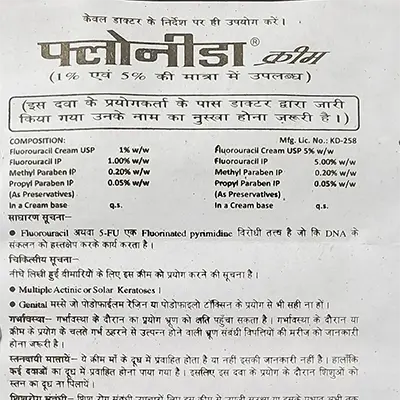 केवल डाक्टर के निर्देश पर ही उपयोग करें ।
फ्लोनीडा® क्रीम
(1% एवं 5% की मात्रा में उपलब्ध)
(इस दवा के प्रयोगकर्ता के पास डाक्टर द्वारा जारी
किया गया उनके नाम का नुस्खा होना ज़रूरी है।)
Mfg. Lic. No.: KD-258
COMPOSITION:
Fluorouracil Cream USP 1% w/w Fluorouracil Cream USP 5% w/w
Fluorouracil IP 1.00% w/w Fluorouracil IP 5.00% w/w
Methyl Paraben IP 0.20% w/w Methyl Paraben IP 0.20% w/w
Propyl Paraben IP 0.05% w/w Propyl Paraben IP 0.05% w/w
(As Preservatives) (As Preservatives)
In a Cream base q.s. In a Cream base q.s.
साधारण सूचना–
● Fluorouracil अथवा 5-FU एक Fluorinated pyrimidine विरोधी तत्त्व है जो कि DNA के
संकलन को हस्तक्षेप करके कार्य करता है।
चिकित्सीय सूचना–
नीचे लिखी हुई बीमारियों के लिए इस क्रीम को प्रयोग करने की सूचना है।
● Multiple Actinic or Solar Keratoses।
● Genital मस्से जो पोडोफाईलम रेजिन या पोडोफाइलो टॉक्सिन के प्रयोग से भी सही ना हों।
गर्भावस्था– गर्भावस्था के दौरान का प्रयोग भ्रूण को क्षति पहुँचा सकता है। गर्भावस्था के दौरान या
क्रीम के प्रयोग के चलते गर्भ ठहरने से उत्पन्न होने वाली भ्रूण संबंधी विपत्तियों की मरीज को जानकारी
होना जरूरी है।
स्तनवायी मातायें– ये क्रीम माँ के दूध में प्रवाहित होता है या नहीं इसकी जानकारी नहीं है। हालाँकि
कई दवाओं का दूध में प्रवाहित होना पाया गया है। इसलिए इस दवा के प्रयोग के दौरान शिशुओं को
स्तन का दूध ना पिलायें।